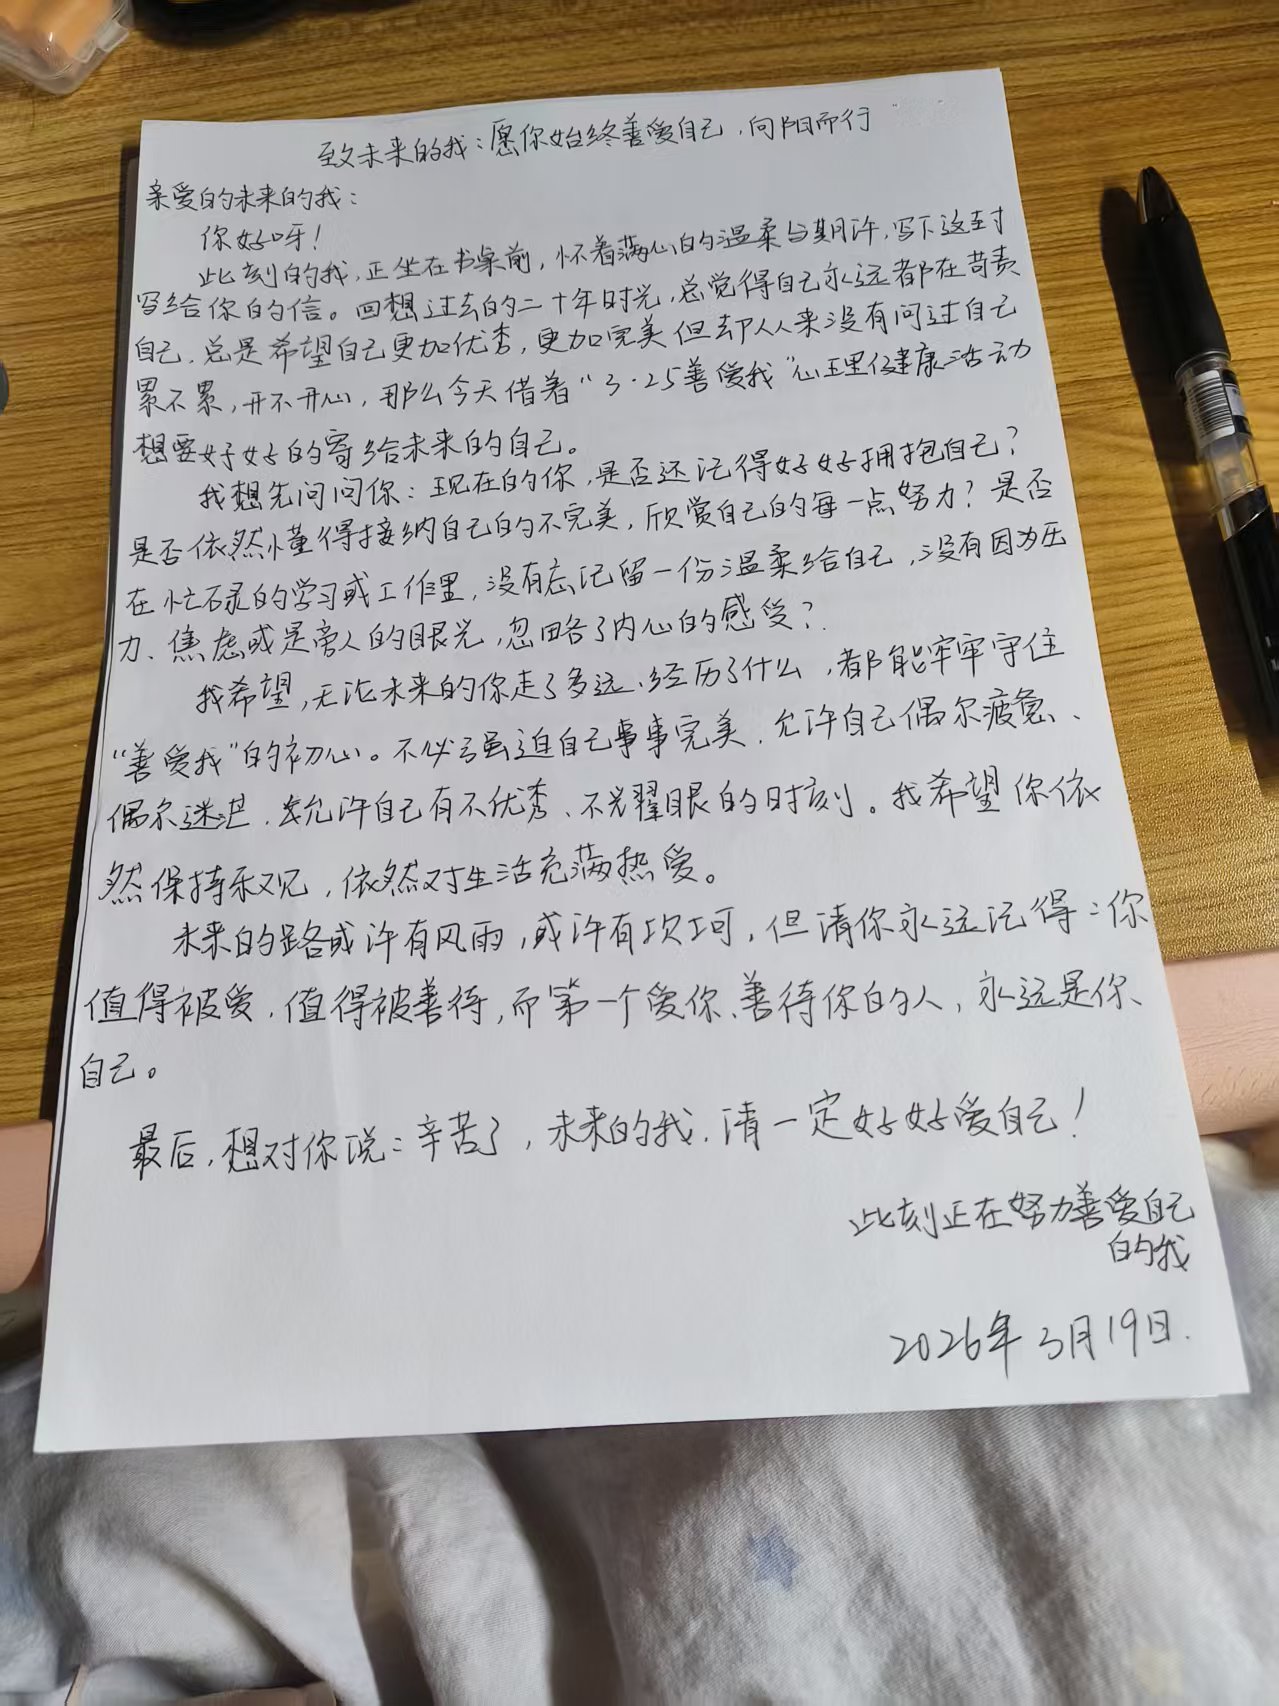 致未来的我:愿你始终善爱自己,向阳而行
亲爱的未来的我:
你好呀!
此刻的我,正坐在书桌前,怀着满心的温柔与期许,写下这封
写给你的信。回想过去的二十年时光,总觉得自己永远都在苛责
自己,总是希望自己更加优秀,更加完美但却从来没有问过自己
累不累,开不开心,那么今天借着“3·25善爱我”心理健康活动
想要好好的寄给未来的自己。
我想先问问你:现在的你,是否还记得好好拥抱自己?
是否依然懂得接纳自己的不完美,欣赏自己的每一点努力?是否
在忙碌的学习或工作里,没有忘记留一份温柔给自己,没有因为压
力、焦虑或是旁人的眼光,忽略了内心的感受?
我希望,无论未来的你走了多远、经历了什么,都能牢牢守住
“善爱我”的初心。不必强迫自己事事完美,允许自己偶尔疲惫、
偶尔迷茫,允许自己有不优秀、不光耀眼的时刻。我希望你依
然保持乐观,依然对生活充满热爱。
未来的路或许有风雨,或许有坎坷,但请你永远记得:你
值得被爱,值得被善待,而第一个爱你、善待你的人,永远是你
自己。
最后,想对你说:辛苦了,未来的我,请一定好好爱自己!
此刻正在努力善爱自己
的我
2026年3月19日.